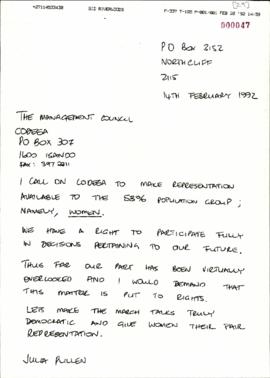 +27114633438
SIS RIVERWOODS
F-337 T-102 P-001/001 FEB 28 '92 14:39
000047
PO BOX 2152
NORTHCLIFF
2115
14TH FEBRUARY 1992
THE MANAGEMENT COUNCIL
CODESA
PO BOX 307
1600 ISANDO
FAX: 397 2211
I CALL ON CODESA TO MAKE REPRESENTATION
AVAILABLE TO THE 53% POPULATION GROUP;
NAMELY, WOMEN.
WE HAVE A RIGHT TO PARTICIPATE FULLY
IN DECISIONS PERTAINING TO OUR FUTURE.
THUS FAR OUR PART HAS BEEN VIRTUALLY
OVERLOOKED AND I WOULD DEMAND THAT
THIS MATTER IS PUT TO RIGHTS.
LETS MAKE THE MARCH TALKS TRULY
DEMOCRATIC AND GIVE WOMEN THEIR FAIR
REPRESENTATION.
JULIA PULLEN